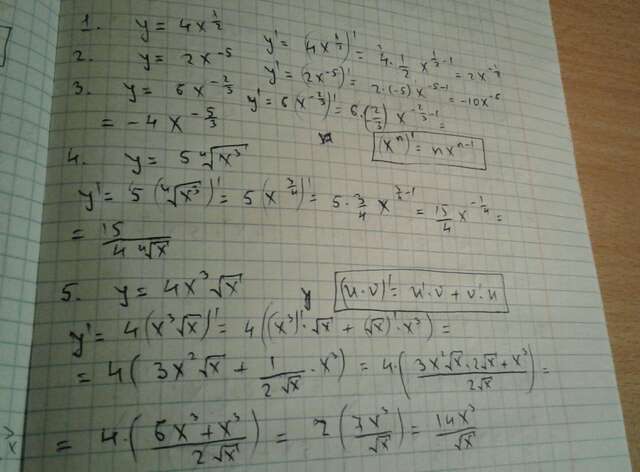 1. y = 4x^{1/2} y' = (4x^{1/2})' = 4·1/2 x^{1/2-1} = 2x^{-1/2}
2. y = 2x^{-5} y' = (2x^{-5})' = 2·(-5)x^{-5-1} = -10x^{-6}
3. y = 6x^{-2/3} y' = 6(x^{-2/3})' = 6·(-2/3) x^{-2/3-1} =
= -4x^{-5/3} (x^n)' = nx^{n-1}
4. y = 5 ⁴√x³
y' = 5(⁴√x³)' = 5(x^{3/4})' = 5·3/4 x^{3/4-1} = 15/4 x^{-1/4} =
= 15/(4 ⁴√x)
5. y = 4x³√x y (u·v)' = u'·v + v'·u
y' = 4(x³√x)' = 4((x³)'·√x + (√x)'·x³) =
= 4(3x²√x + 1/(2√x)·x³) = 4·((3x²√x·2√x + x³)/(2√x)) =
= 4·((6x³ + x³)/(2√x)) = 2(7x³/√x) = 14x³/√x